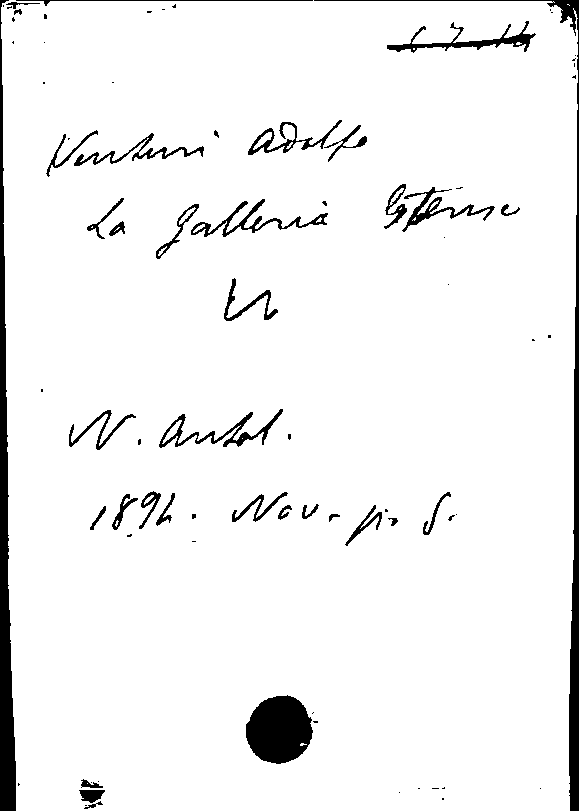 6.7.14
Venturi Adolfo
La Galleria Estense
N. Antol.
1894. Nov. p. 5.